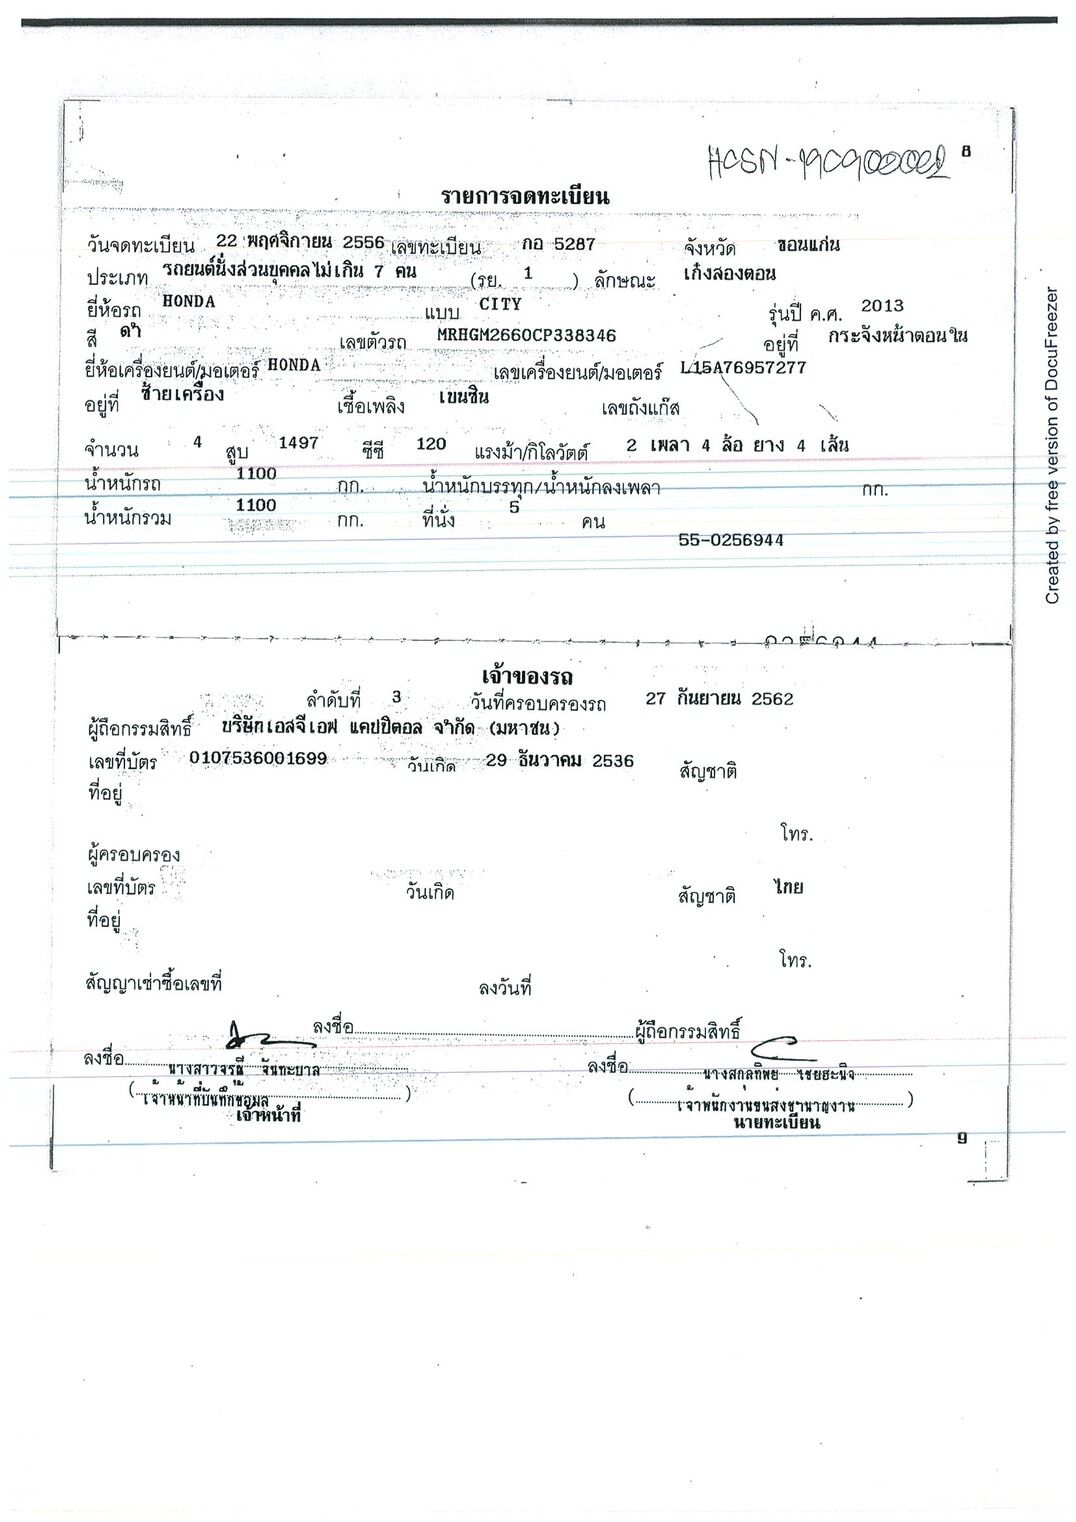 8
รายการจดทะเบียน
วันจดทะเบียน 22 พฤศจิกายน 2556 เลขทะเบียน กอ 5287 จังหวัด ขอนแก่น
ประเภท รถยนต์นั่งส่วนบุคคลไม่เกิน 7 คน (รย. 1 ) ลักษณะ เก๋งสองตอน
ยี่ห้อรถ HONDA แบบ CITY รุ่นปี ค.ศ. 2013
สี ดำ เลขตัวรถ MRHGM2660CP338346 อยู่ที่ กระจังหน้าตอนใน
ยี่ห้อเครื่องยนต์/มอเตอร์ HONDA เลขเครื่องยนต์/มอเตอร์ L15A76957277
อยู่ที่ ซ้ายเครื่อง เชื้อเพลิง เบนซิน เลขถังแก๊ส
จำนวน 4 สูบ 1497 ซีซี 120 แรงม้า/กิโลวัตต์ 2 เพลา 4 ล้อ ยาง 4 เส้น
น้ำหนักรถ 1100 กก. น้ำหนักบรรทุก/น้ำหนักลงเพลา กก.
น้ำหนักรวม 1100 กก. ที่นั่ง 5 คน
55-0256944
เจ้าของรถ
ลำดับที่ 3 วันที่ครอบครองรถ 27 กันยายน 2562
ผู้ถือกรรมสิทธิ์ บริษัทเอสจีเอฟ แคปปิตอล จำกัด (มหาชน)
เลขที่บัตร 0107536001699 วันเกิด 29 ธันวาคม 2536 สัญชาติ
ที่อยู่
โทร.
ผู้ครอบครอง
เลขที่บัตร วันเกิด สัญชาติ ไทย
ที่อยู่
โทร.
สัญญาเช่าซื้อเลขที่ ลงวันที่
ลงชื่อ ผู้ถือกรรมสิทธิ์
ลงชื่อ นางสาวจรุณี จันทะบาล ลงชื่อ
(เจ้าหน้าที่บันทึกข้อมูล) (เจ้าพนักงานขนส่งชำนาญงาน)
เจ้าหน้าที่ นายทะเบียน
9
Created by free version of DocuFreezer